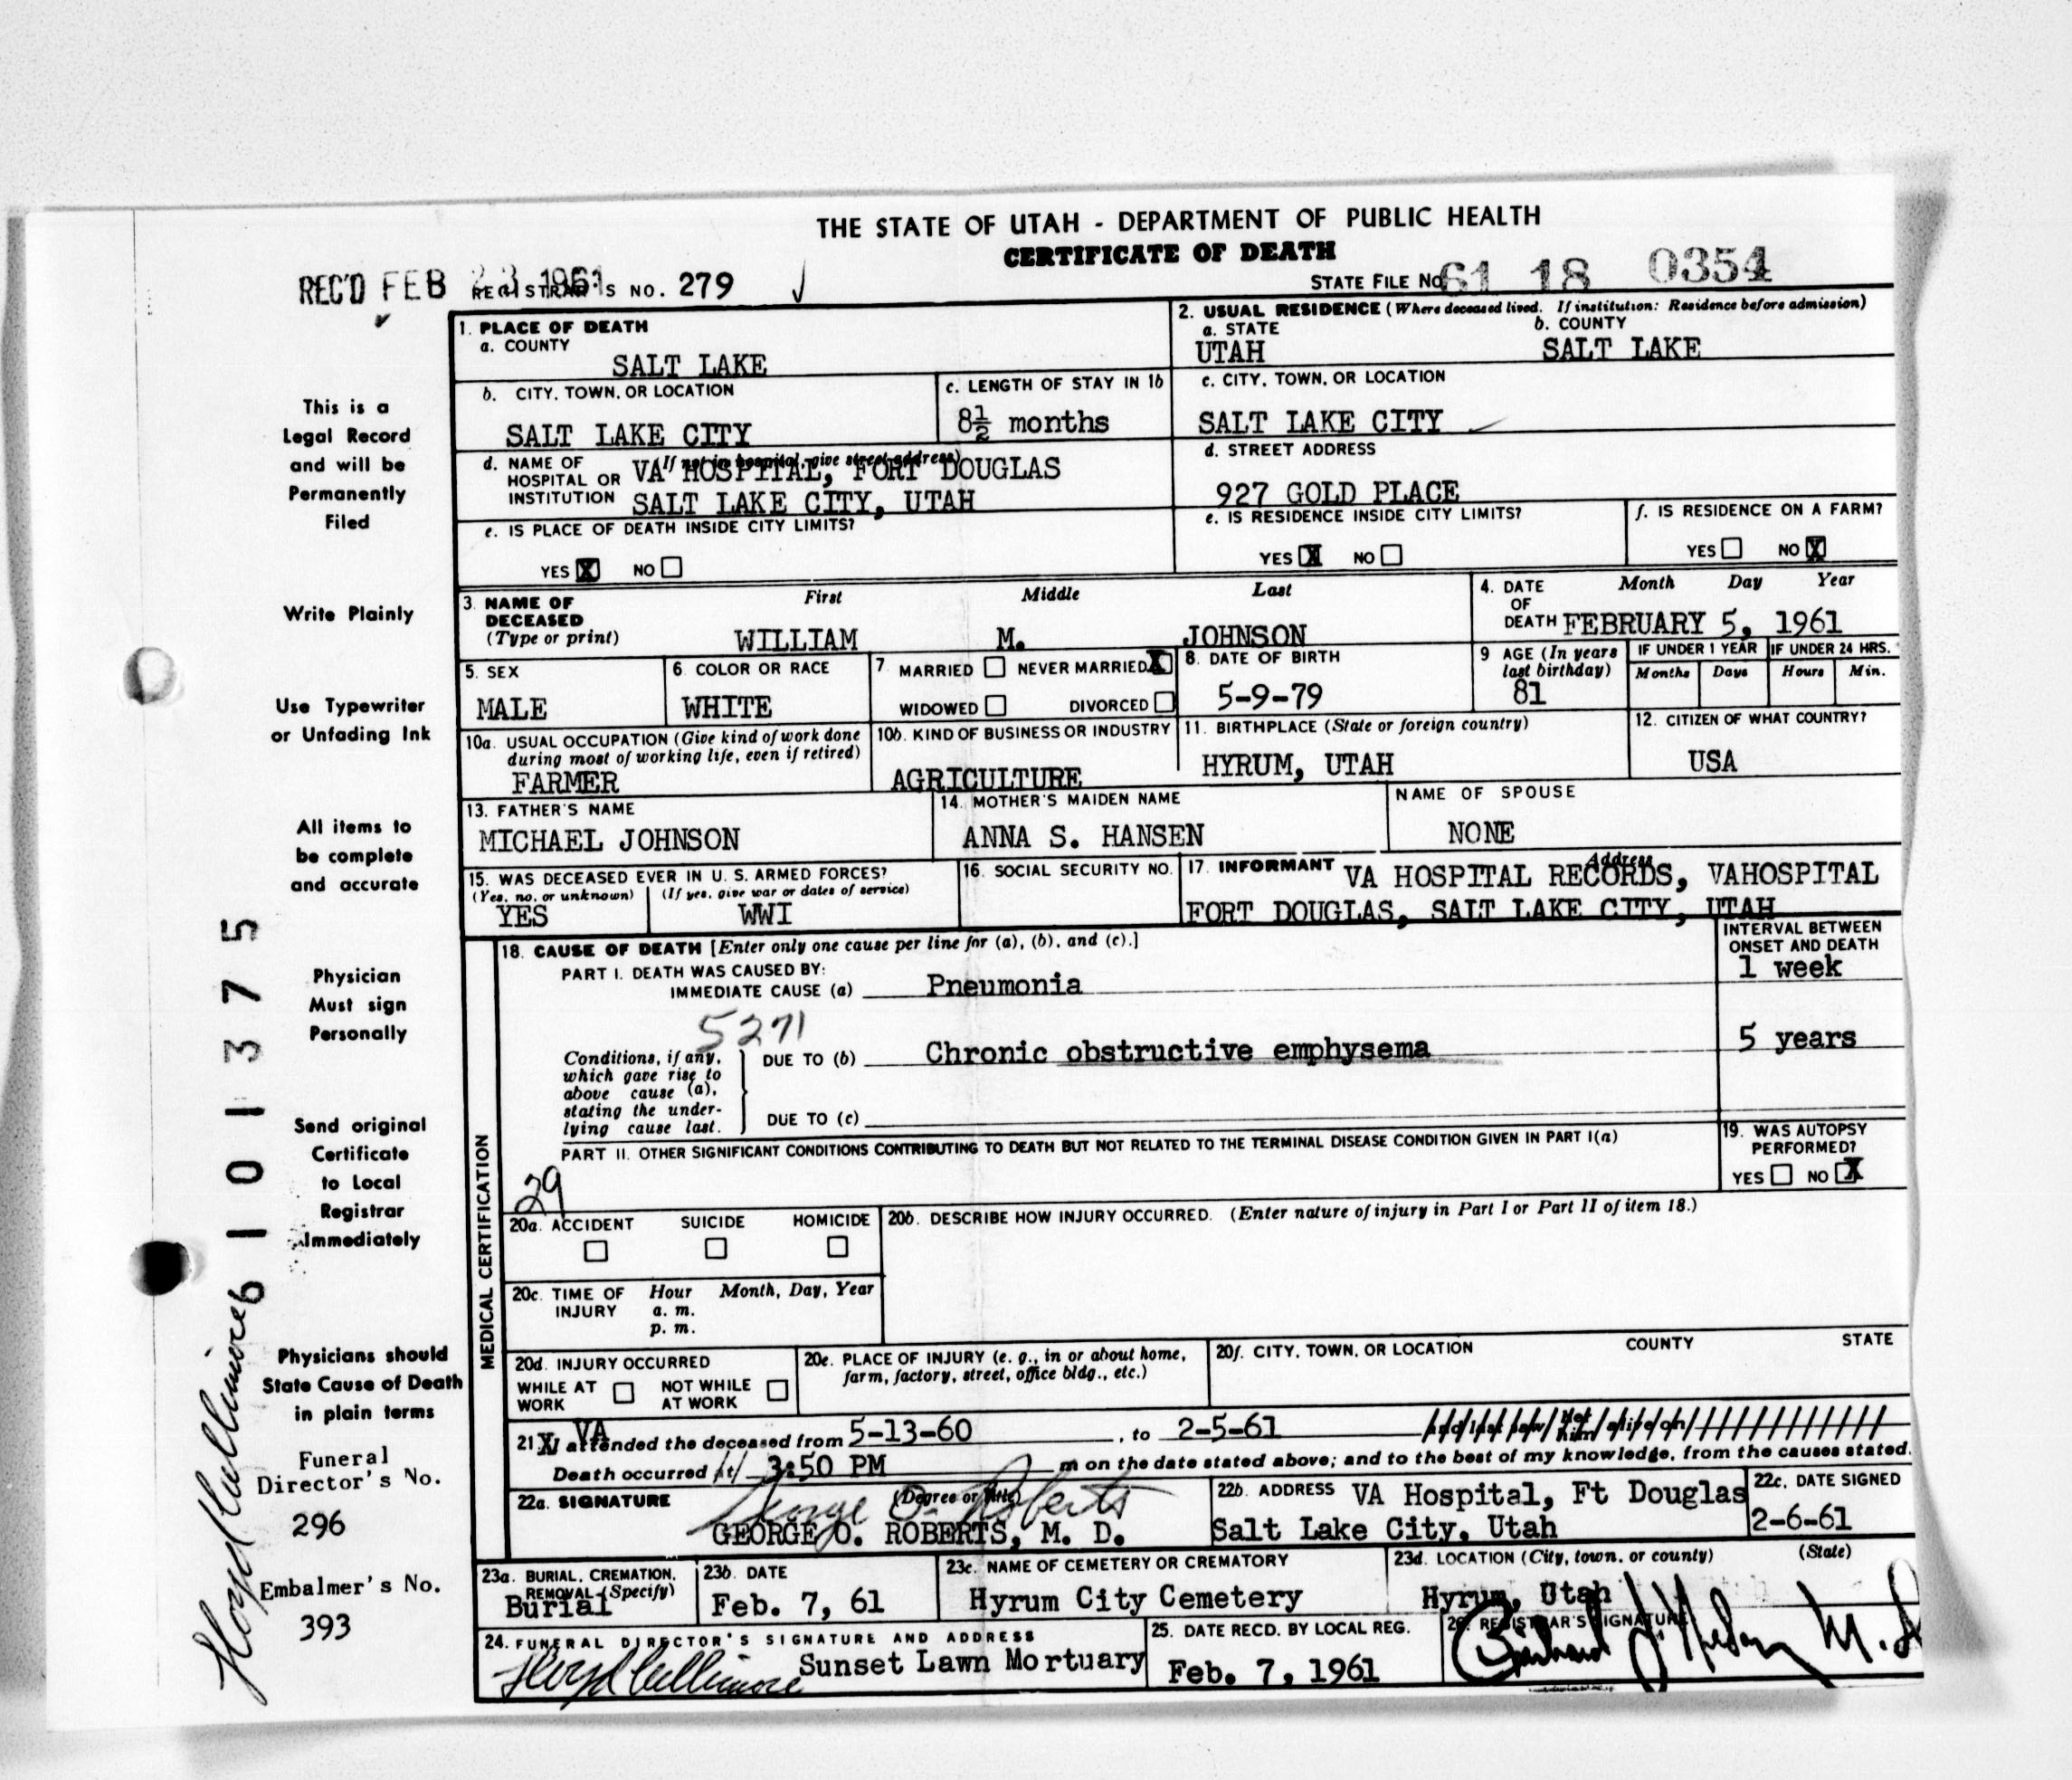 THE STATE OF UTAH - DEPARTMENT OF PUBLIC HEALTH
CERTIFICATE OF DEATH
REC'D FEB 23 1961 REGISTRAR'S NO. 279 STATE FILE NO. 61 18 0354
1. PLACE OF DEATH
a. COUNTY
SALT LAKE
2. USUAL RESIDENCE (Where deceased lived. If institution: Residence before admission)
a. STATE b. COUNTY
UTAH SALT LAKE
b. CITY, TOWN, OR LOCATION
SALT LAKE CITY
c. LENGTH OF STAY IN 1b
8½ months
c. CITY, TOWN, OR LOCATION
SALT LAKE CITY
d. NAME OF HOSPITAL OR INSTITUTION (If not in hospital, give street address)
VA HOSPITAL, FORT DOUGLAS
SALT LAKE CITY, UTAH
d. STREET ADDRESS
927 GOLD PLACE
e. IS PLACE OF DEATH INSIDE CITY LIMITS?
YES X NO
e. IS RESIDENCE INSIDE CITY LIMITS?
YES X NO
f. IS RESIDENCE ON A FARM?
YES NO X
3. NAME OF DECEASED (Type or print)
First Middle Last
WILLIAM M. JOHNSON
4. DATE OF DEATH Month Day Year
FEBRUARY 5, 1961
5. SEX
MALE
6 COLOR OR RACE
WHITE
7 MARRIED NEVER MARRIED X
WIDOWED DIVORCED
8. DATE OF BIRTH
5-9-79
9 AGE (In years last birthday)
81
IF UNDER 1 YEAR IF UNDER 24 HRS.
Months Days Hours Min.
10a. USUAL OCCUPATION (Give kind of work done during most of working life, even if retired)
FARMER
10b. KIND OF BUSINESS OR INDUSTRY
AGRICULTURE
11. BIRTHPLACE (State or foreign country)
HYRUM, UTAH
12. CITIZEN OF WHAT COUNTRY?
USA
13. FATHER'S NAME
MICHAEL JOHNSON
14. MOTHER'S MAIDEN NAME
ANNA S. HANSEN
NAME OF SPOUSE
NONE
15. WAS DECEASED EVER IN U. S. ARMED FORCES?
(Yes, no, or unknown) (If yes, give war or dates of service)
YES WWI
16. SOCIAL SECURITY NO.
17. INFORMANT Address
VA HOSPITAL RECORDS, VAHOSPITAL
FORT DOUGLAS, SALT LAKE CITY, UTAH
MEDICAL CERTIFICATION
18. CAUSE OF DEATH [Enter only one cause per line for (a), (b), and (c).]
INTERVAL BETWEEN ONSET AND DEATH
PART I. DEATH WAS CAUSED BY:
IMMEDIATE CAUSE (a) Pneumonia 1 week
5271
Conditions, if any, which gave rise to above cause (a), stating the underlying cause last.
DUE TO (b) Chronic obstructive emphysema 5 years
DUE TO (c)
PART II. OTHER SIGNIFICANT CONDITIONS CONTRIBUTING TO DEATH BUT NOT RELATED TO THE TERMINAL DISEASE CONDITION GIVEN IN PART I(a)
29
19. WAS AUTOPSY PERFORMED?
YES NO X
20a. ACCIDENT SUICIDE HOMICIDE
20b. DESCRIBE HOW INJURY OCCURRED. (Enter nature of injury in Part I or Part II of item 18.)
20c. TIME OF INJURY Hour Month, Day, Year
a. m.
p. m.
20d. INJURY OCCURRED
WHILE AT WORK NOT WHILE AT WORK
20e. PLACE OF INJURY (e. g., in or about home, farm, factory, street, office bldg., etc.)
20f. CITY, TOWN, OR LOCATION COUNTY STATE
21. VA attended the deceased from 5-13-60, to 2-5-61
Death occurred at 3:50 PM m on the date stated above; and to the best of my knowledge, from the causes stated.
22a. SIGNATURE (Degree or title)
George O. Roberts
GEORGE O. ROBERTS, M. D.
22b. ADDRESS VA Hospital, Ft Douglas
Salt Lake City, Utah
22c. DATE SIGNED
2-6-61
23a. BURIAL, CREMATION, REMOVAL (Specify)
Burial
23b. DATE
Feb. 7, 61
23c. NAME OF CEMETERY OR CREMATORY
Hyrum City Cemetery
23d. LOCATION (City, town, or county) (State)
Hyrum, Utah
24. FUNERAL DIRECTOR'S SIGNATURE AND ADDRESS
Sunset Lawn Mortuary
25. DATE RECD. BY LOCAL REG.
Feb. 7, 1961
26. REGISTRAR'S SIGNATURE
This is a
Legal Record
and will be
Permanently
Filed
Write Plainly
Use Typewriter
or Unfading Ink
All items to
be complete
and accurate
Physician
Must sign
Personally
Send original
Certificate
to Local
Registrar
Immediately
Physicians should
State Cause of Death
in plain terms
Funeral
Director's No.
296
Embalmer's No.
393
6101375